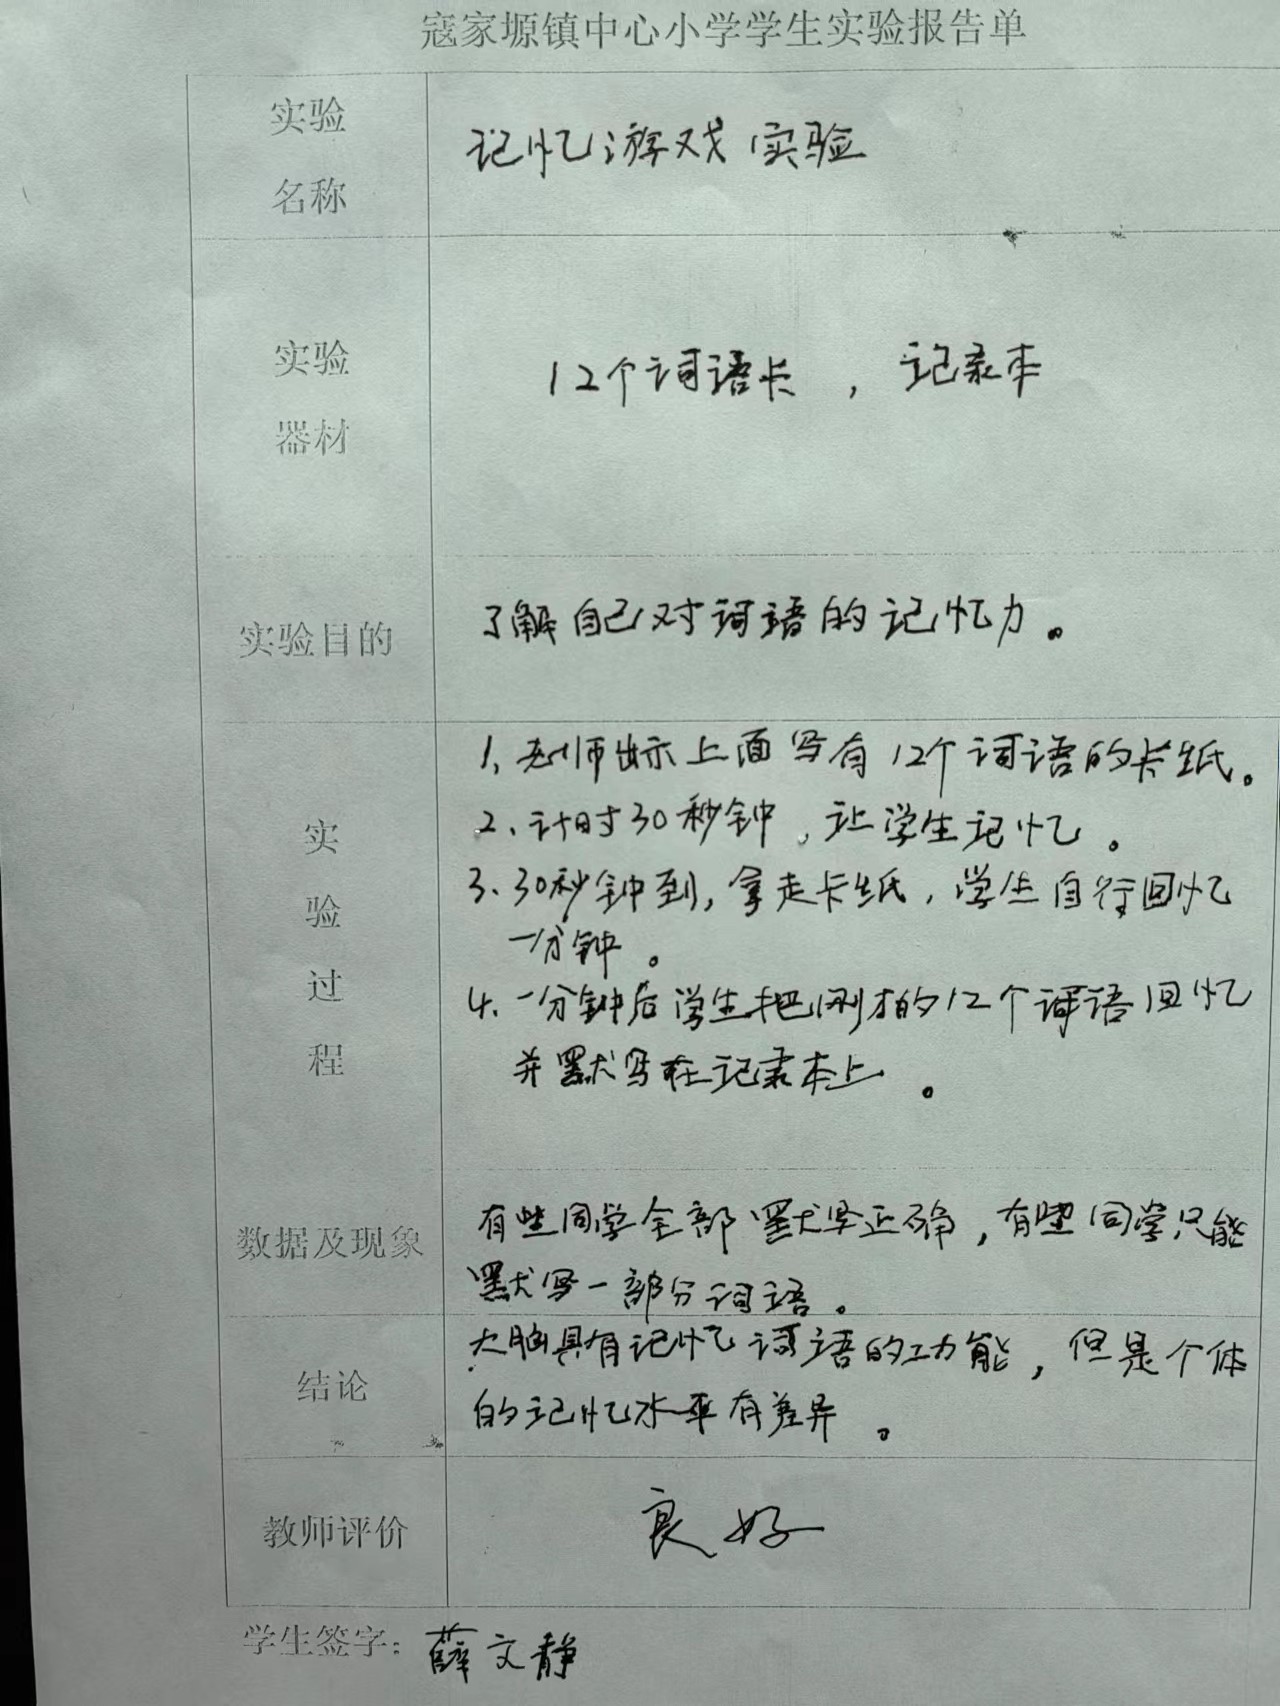 寇家塬镇中心小学学生实验报告单
实验
名称
记忆游戏实验
实验
器材
12个词语卡，记录本
实验目的
了解自己对词语的记忆力。
实
验
过
程
1、老师出示上面写有12个词语的卡纸。
2、计时30秒钟，让学生记忆。
3、30秒钟到，拿走卡纸，学生自行回忆
一分钟。
4、一分钟后学生把刚才的12个词语回忆
并默写在记录本上。
数据及现象
有些同学全部默写正确，有些同学只能
默写一部分词语。
结论
大脑具有记忆词语的功能，但是个体
的记忆水平有差异。
教师评价
良好
学生签字：薛文静